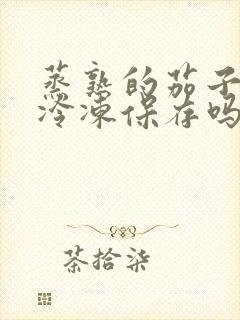 蒸熟的茄子
冷凍保存吗
茶拾柒